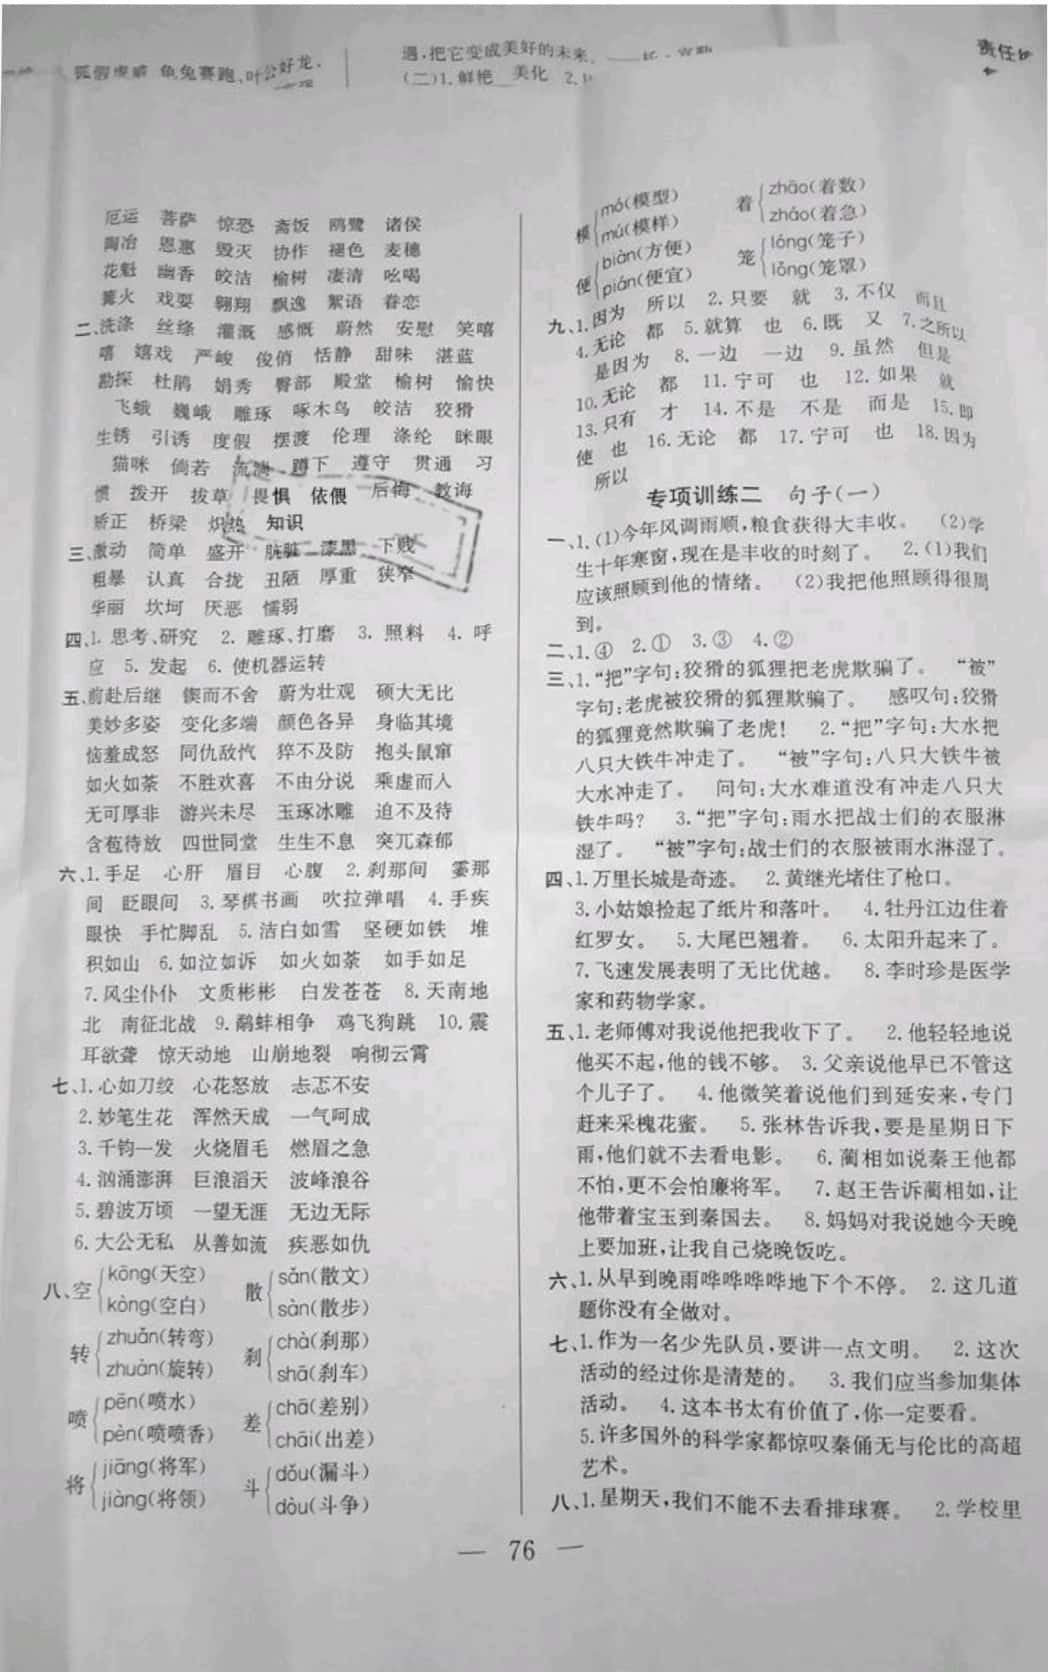 狐假虎威 龟兔赛跑、叶公好龙、
遇,把它变成美好的未来。
(二)1.鲜艳 美化 2.
责任
厄运 菩萨 惊恐 斋饭 鸥鹭 诸侯
陶冶 恩惠 毁灭 协作 褪色 麦穗
花魁 幽香 皎洁 榆树 凄清 吆喝
篝火 戏耍 翱翔 飘逸 絮语 眷恋
二、洗涤 丝绦 灌溉 感慨 蔚然 安慰 笑嘻
嘻 嬉戏 严峻 俊俏 恬静 甜味 湛蓝
勘探 杜鹃 娟秀 臀部 殿堂 榆树 愉快
飞蛾 巍峨 雕琢 啄木鸟 皎洁 狡猾
生锈 引诱 度假 摆渡 伦理 涤纶 眯眼
猫咪 倘若 流淌 蹲下 遵守 贯通 习
惯 拨开 拔草 畏惧 依偎 后悔 教诲
矫正 桥梁 炽热 知识
三、激动 简单 盛开 肮脏 漆黑 下贱
粗暴 认真 合拢 丑陋 厚重 狭窄
华丽 坎坷 厌恶 懦弱
四、1. 思考、研究 2. 雕琢、打磨 3. 照料 4. 呼
应 5. 发起 6. 使机器运转
五、前赴后继 锲而不舍 蔚为壮观 硕大无比
美妙多姿 变化多端 颜色各异 身临其境
恼羞成怒 同仇敌忾 猝不及防 抱头鼠窜
如火如荼 不胜欢喜 不由分说 乘虚而入
无可厚非 游兴未尽 玉琢冰雕 迫不及待
含苞待放 四世同堂 生生不息 突兀森郁
六、1.手足 心肝 眉目 心腹 2.刹那间 霎那
间 眨眼间 3.琴棋书画 吹拉弹唱 4.手疾
眼快 手忙脚乱 5.洁白如雪 坚硬如铁 堆
积如山 6.如泣如诉 如火如荼 如手如足
7.风尘仆仆 文质彬彬 白发苍苍 8.天南地
北 南征北战 9.鹬蚌相争 鸡飞狗跳 10.震
耳欲聋 惊天动地 山崩地裂 响彻云霄
七、1.心如刀绞 心花怒放 忐忑不安
2.妙笔生花 浑然天成 一气呵成
3.千钧一发 火烧眉毛 燃眉之急
4.汹涌澎湃 巨浪滔天 波峰浪谷
5.碧波万顷 一望无涯 无边无际
6.大公无私 从善如流 疾恶如仇
八、空 kōng(天空) kòng(空白) 散 sǎn(散文) sàn(散步)
转 zhuǎn(转弯) zhuàn(旋转) 刹 chà(刹那) shā(刹车)
喷 pēn(喷水) pèn(喷喷香) 差 chā(差别) chāi(出差)
将 jiāng(将军) jiàng(将领) 斗 dǒu(漏斗) dòu(斗争)
模 mó(模型) mú(模样) 着 zhāo(着数) zháo(着急)
便 biàn(方便) pián(便宜) 笼 lóng(笼子) lǒng(笼罩)
九、1.因为 所以 2.只要 就 3.不仅 而且
4.无论 都 5.就算 也 6.既 又 7.之所以
是因为 8.一边 一边 9.虽然 但是
10.无论 都 11.宁可 也 12.如果 就
13.只有 才 14.不是 不是 而是 15.即
使 也 16.无论 都 17.宁可 也 18.因为
所以
专项训练二 句子(一)
一、1.(1)今年风调雨顺,粮食获得大丰收。 (2)学
生十年寒窗,现在是丰收的时刻了。 2.(1)我们
应该照顾到他的情绪。 (2)我把他照顾得很周
到。
二、1.④ 2.① 3.③ 4.②
三、1.“把”字句:狡猾的狐狸把老虎欺骗了。 “被”
字句:老虎被狡猾的狐狸欺骗了。 感叹句:狡猾
的狐狸竟然欺骗了老虎! 2.“把”字句:大水把
八只大铁牛冲走了。 “被”字句:八只大铁牛被
大水冲走了。 问句:大水难道没有冲走八只大
铁牛吗? 3.“把”字句:雨水把战士们的衣服淋
湿了。 “被”字句:战士们的衣服被雨水淋湿了。
四、1.万里长城是奇迹。 2.黄继光堵住了枪口。
3.小姑娘捡起了纸片和落叶。 4.牡丹江边住着
红罗女。 5.大尾巴翘着。 6.太阳升起来了。
7.飞速发展表明了无比优越。 8.李时珍是医学
家和药物学家。
五、1.老师傅对我说他把我收下了。 2.他轻轻地说
他买不起,他的钱不够。 3.父亲说他早已不管这
个儿子了。 4.他微笑着说他们到延安来,专门
赶来采槐花蜜。 5.张林告诉我,要是星期日下
雨,他们就不去看电影。 6.蔺相如说秦王他都
不怕,更不会怕廉将军。 7.赵王告诉蔺相如,让
他带着宝玉到秦国去。 8.妈妈对我说她今天晚
上要加班,让我自己烧晚饭吃。
六、1.从早到晚雨哗哗哗哗地下个不停。 2.这几道
题你没有全做对。
七、1.作为一名少先队员,要讲一点文明。 2.这次
活动的经过你是清楚的。 3.我们应当参加集体
活动。 4.这本书太有价值了,你一定要看。
5.许多国外的科学家都惊叹秦俑无与伦比的高超
艺术。
八、1.星期天,我们不能不去看排球赛。 2.学校里
— 76 —